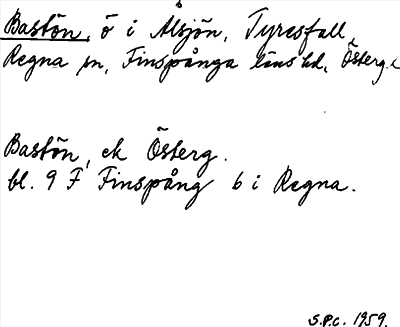 Bastön, ö i Älsjön, Tyresfall,
Regna sn, Finspånga läns hd, Österg.
Bastön, ek Österg.
bl. 9 F Finspång 6 i Regna.
S.P.C. 1959.